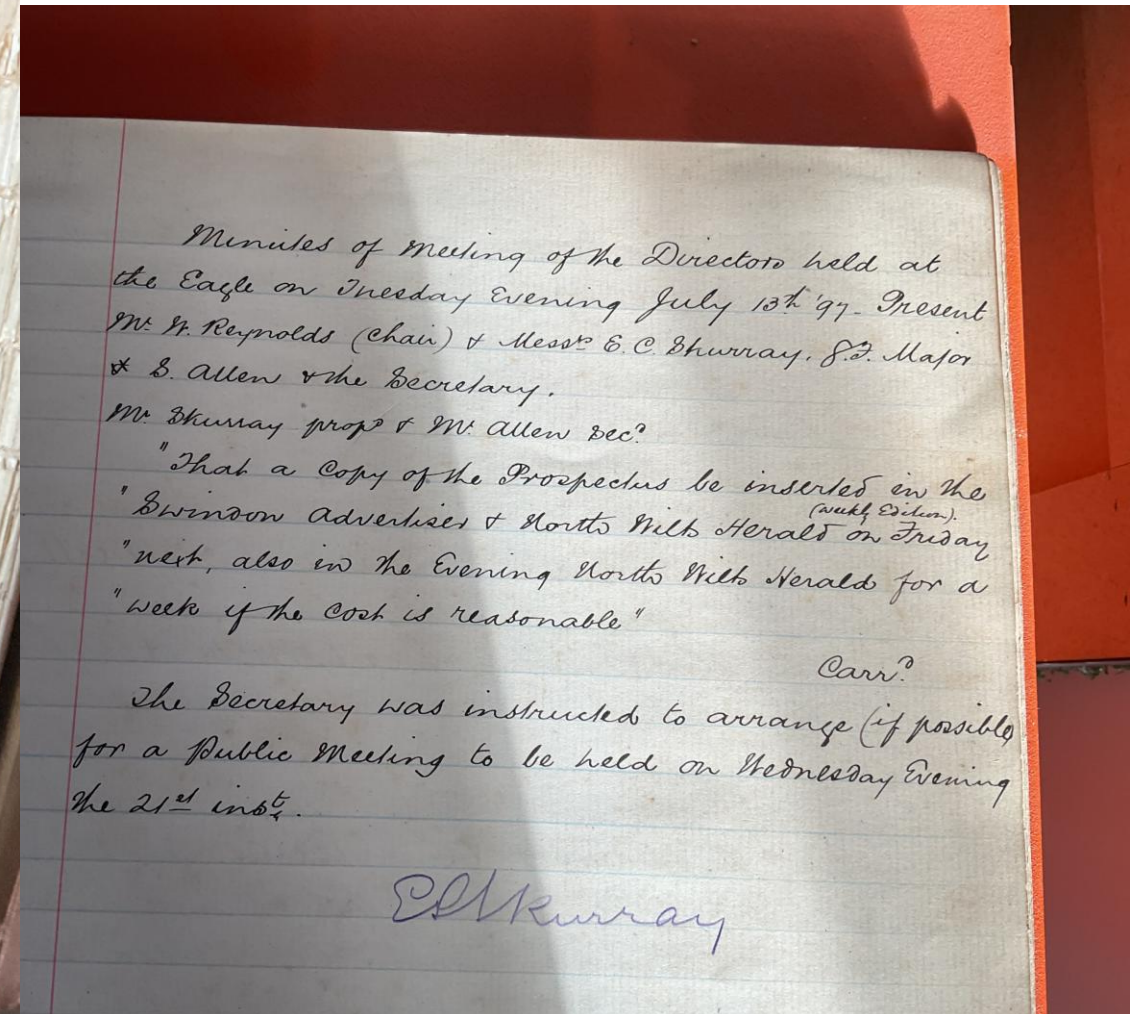 Minutes of Meeting of the Directors held at
the Eagle on Tuesday Evening July 13th '97. Present
Mr. W. Reynolds (Chair) & Messrs E. C. Skurray, J. F. Major
& S. Allen & the Secretary.
Mr. Skurray propd & Mr. Allen Secd
"That a Copy of the Prospectus be inserted in the
"Swindon Advertiser & North Wilts Herald (Weekly Edition). on Friday
"next, also in the Evening North Wilts Herald for a
"week if the cost is reasonable"
Carrd
The Secretary was instructed to arrange (if possible)
for a Public Meeting to be held on Wednesday Evening
the 21st inst.
E C Skurray